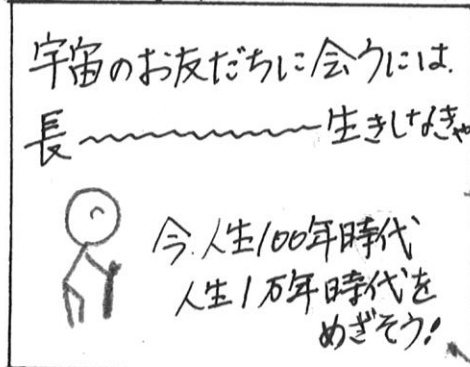 宇宙のお友だちに会うには.
長〜〜〜〜〜生きしなきゃ
今.人生100年時代
人生1万年時代を
めざそう!